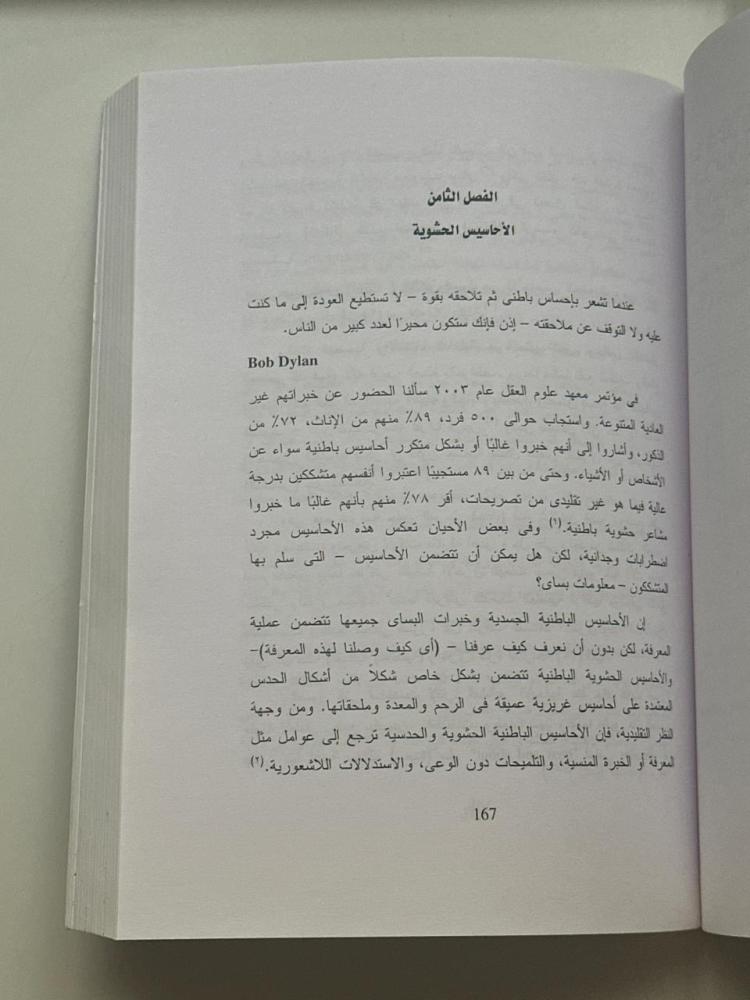 الفصل الثامن
الأحاسيس الحشوية
عندما تشعر بإحساس باطنى ثم تلاحقه بقوة – لا تستطيع العودة إلى ما كنت
عليه ولا التوقف عن ملاحقته – إذن فإنك ستكون محيرًا لعدد كبير من الناس.
Bob Dylan
فى مؤتمر معهد علوم العقل عام ٢٠٠٣ سألنا الحضور عن خبراتهم غير
العادية المتنوعة. واستجاب حوالى ٥٠٠ فرد، ٨٩٪ منهم من الإناث، ٧٢٪ من
الذكور، وأشاروا إلى أنهم خبروا غالبًا أو بشكل متكرر أحاسيس باطنية سواء عن
الأشخاص أو الأشياء. وحتى من بين ٨٩ مستجيبًا اعتبروا أنفسهم متشككين بدرجة
عالية فيما هو غير تقليدى من تصريحات، أقر ٧٨٪ منهم بأنهم غالبًا ما خبروا
مشاعر حشوية باطنية.(١) وفى بعض الأحيان تعكس هذه الأحاسيس مجرد
اضطرابات وجدانية، لكن هل يمكن أن تتضمن الأحاسيس – التى سلم بها
المتشككون – معلومات بساى؟
إن الأحاسيس الباطنية الجسدية وخبرات البساى جميعها تتضمن عملية
المعرفة، لكن بدون أن نعرف كيف عرفنا – (أى كيف وصلنا لهذه المعرفة)–
والأحاسيس الحشوية الباطنية تتضمن بشكل خاص شكلاً من أشكال الحدس
المعتمدة على أحاسيس غريزية عميقة فى الرحم والمعدة وملحقاتها. ومن وجهة
النظر التقليدية، فإن الأحاسيس الباطنية الحشوية والحدسية ترجع إلى عوامل مثل
المعرفة أو الخبرة المنسية، والتلميحات دون الوعى، والاستدلالات اللاشعورية.(٢)
167